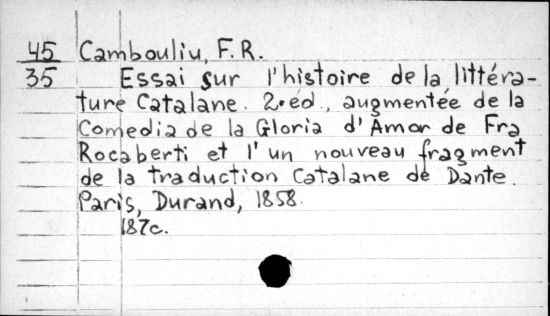 45 Cambouliu, F.R.
35 Essai sur l'histoire de la littéra-
ture Catalane. 2.éd., augmentée de la
Comedia de la Gloria d'Amor de Fra
Rocaberti et l'un nouveau fragment
de la traduction Catalane de Dante.
Paris, Durand, 1858.
187c.